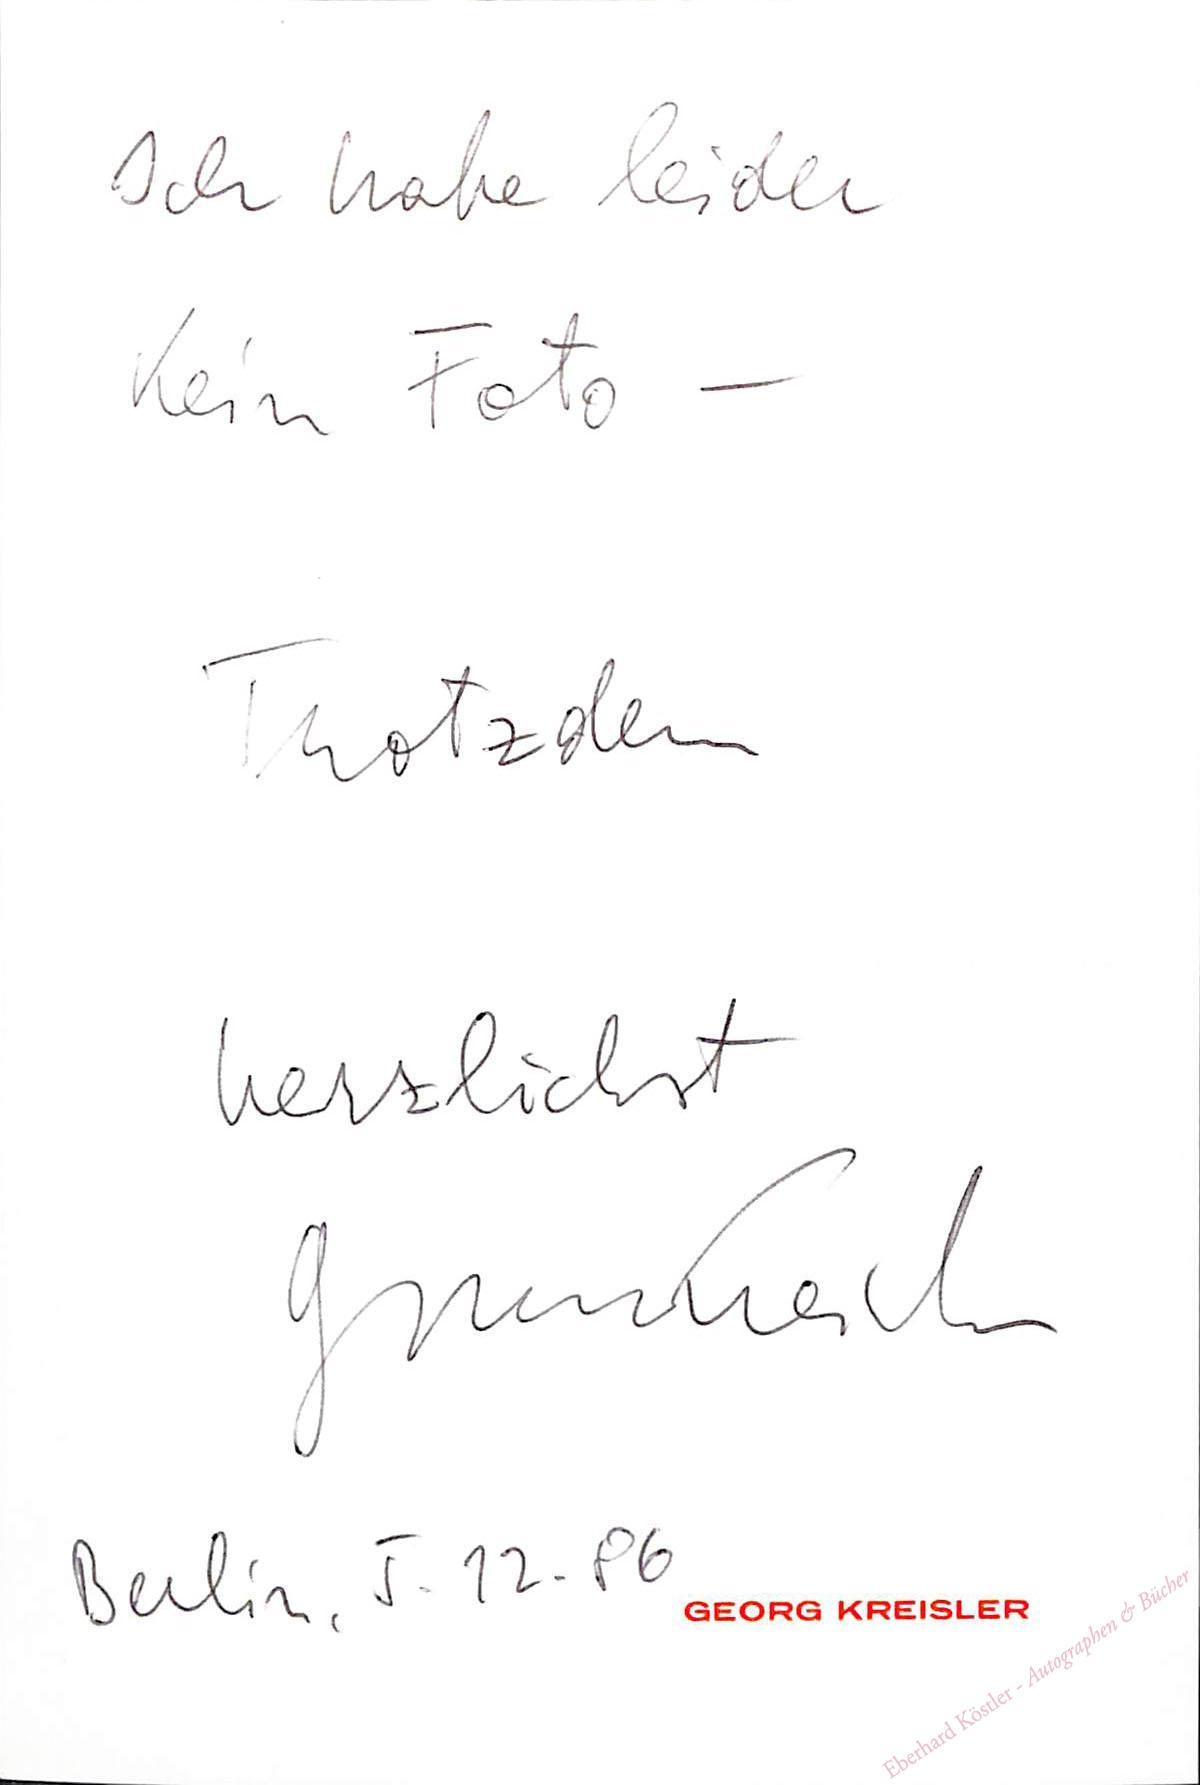 Ich habe leider
kein Foto –
Trotzdem
herzlichst
Georg Kreisler
Berlin, 5.12.86
GEORG KREISLER
Eberhard Köstler - Autographen & Bücher